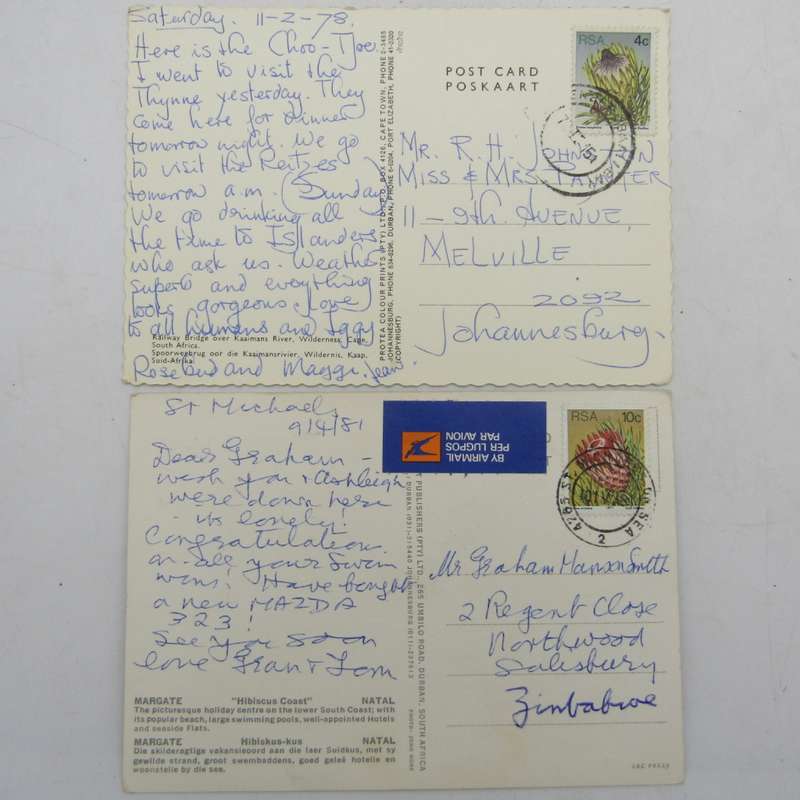 Saturday. 11-2-78.
Here is the Choo-Tjoe
I went to visit the
Thynne yesterday. They
come here for dinner
tomorrow night. We go
to visit the
tomorrow a.m. (Sunday)
We go drinking all
the time to Islanders
who ask us. Weather
superb and everything
looks gorgeous. Love
to all humans and Iggy
Rosebud and Maggi. Jean
Railway Bridge over Kaaimans River, Wilderness, Cape,
South Africa.
Spoorwegbrug oor die Kaaimansrivier, Wildernis, Kaap,
Suid-Afrika.
PROTEA COLOUR PRINTS (PTY) LTD., P.O. BOX 4126, CAPE TOWN, PHONE 2-5485
JOHANNESBURG, PHONE 834-0296, DURBAN, PHONE 6-5004, PORT ELIZABETH, PHONE 41-2320
(COPYRIGHT)
POST CARD
POSKAART
RSA 4c
MR. R. H. JOHNSTON
MISS & MRS.
11 - 9th AVENUE,
MELVILLE
2092
Johannesburg.
St Michaels
9/4/81
Dear Graham -
wish you & Ashleigh
were down here
- its lonely!
Congratulations
on all your Swim
wins! Have bought
a new MAZDA
323!
See you soon
love Gran & Tom
MARGATE "Hibiscus Coast" NATAL
The picturesque holiday centre on the lower South Coast; with
its popular beach, large swimming pools, well-appointed Hotels
and seaside Flats.
MARGATE Hibiskus-kus NATAL
Die skilderagtige vakansieoord aan die laer Suidkus, met sy
gewilde strand, groot swembaddens, goed geleë hotelle en
woonstelle by die see.
PUBLISHERS (PTY) LTD., 265 UMBILO ROAD, DURBAN, SOUTH AFRICA
BY AIRMAIL
PER LUGPOS
PAR AVION
RSA 10c
Mr Graham Hanson Smith
2 Regent Close
Northwood
Salisbury
Zimbabwe